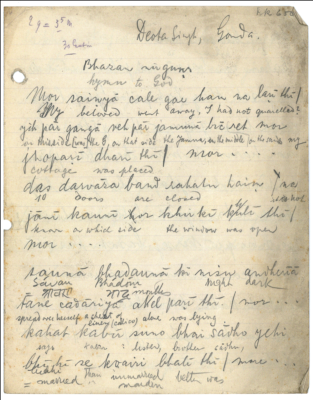 Deota Singh, Gonda.
Bhajan nirguni
hymn to God
Mor saiyā cale gae han na laṛī thī /
My beloved went away. I had not quarelled
yeh pār gangā veh pār jamunā bīc ret mor
on this side the G, on that side the Jamuna, in the middle the sand my
jhoparī dharī thī / mor . . . .
cottage was placed
das darvaza band rahatu hain / na
10 doors are closed not
jānī kaunī or khirkī khulī thī /
know on which side the window was open
mor . . . .
bhadaunā andheriā
Sawan Bhadon night dark
months
tāne cadariyā akel parī thī / mor . . .
spread over herself a sheet of alone was lying
kahat kabīr suno bhai sādho yehi
says listen, brother sādhu,
se kvairī bhalī thī / more . . .
than unmarried better was
= married maiden